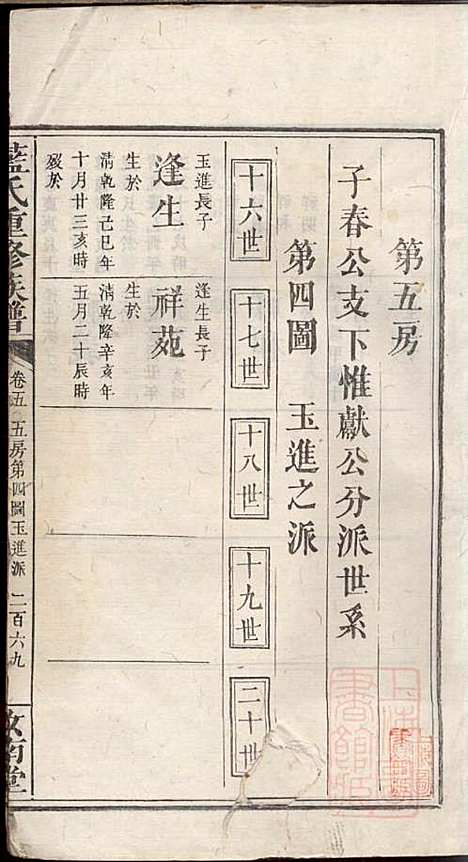 第五房
子春公支下惟獻公分派世系
第四圖　玉進之派
十六世
十七世
十八世
十九世
二十世
玉進長子
逢生
生於
清乾隆己巳年
十月廿三亥時
歿於
逢生長子
祥苑
生於
清乾隆辛亥年
五月二十辰時
藍氏重修族譜
卷五　五房第四圖玉進派　二百六九
汝南堂